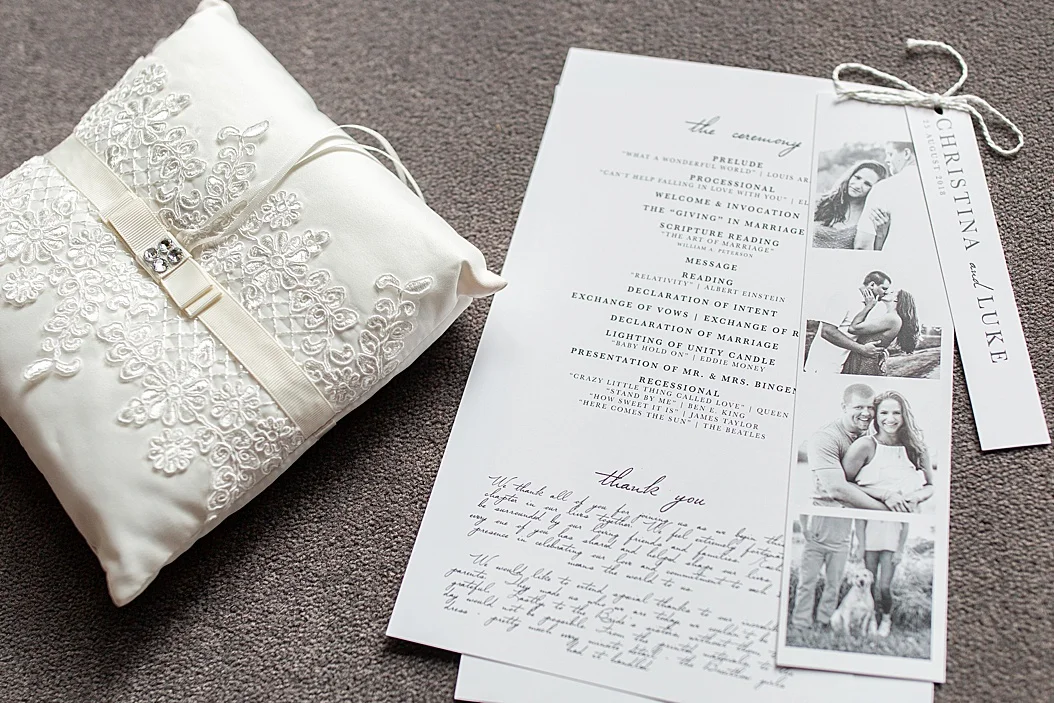 the ceremony
PRELUDE
"WHAT A WONDERFUL WORLD" | LOUIS AR
PROCESSIONAL
"CAN'T HELP FALLING IN LOVE WITH YOU" | EL
WELCOME & INVOCATION
THE "GIVING" IN MARRIAGE
SCRIPTURE READING
"THE ART OF MARRIAGE"
WILLIAM A. PETERSON
MESSAGE
READING
"RELATIVITY" | ALBERT EINSTEIN
DECLARATION OF INTENT
EXCHANGE OF VOWS | EXCHANGE OF R
DECLARATION OF MARRIAGE
LIGHTING OF UNITY CANDLE
"BABY HOLD ON" | EDDIE MONEY
PRESENTATION OF MR. & MRS. BINGEN
RECESSIONAL
"CRAZY LITTLE THING CALLED LOVE" | QUEEN
"STAND BY ME" | BEN E. KING
"HOW SWEET IT IS" | JAMES TAYLOR
"HERE COMES THE SUN" | THE BEATLES
thank you
We thank all of you for joining us as we begin the
chapter in our lives together. We feel intensely fortunat
be surrounded by our loving friends and families
every one of you has shared and helped shape our lives,
presence in celebrating our love and commitment to each
means the world to us.
We would like to extend special thanks to our
parents. They made us who we are today
grateful. Lastly, to the
day would not be possible. From the
dress - pretty much every
had it handled
CHRISTINA and LUKE
25 AUGUST 2018